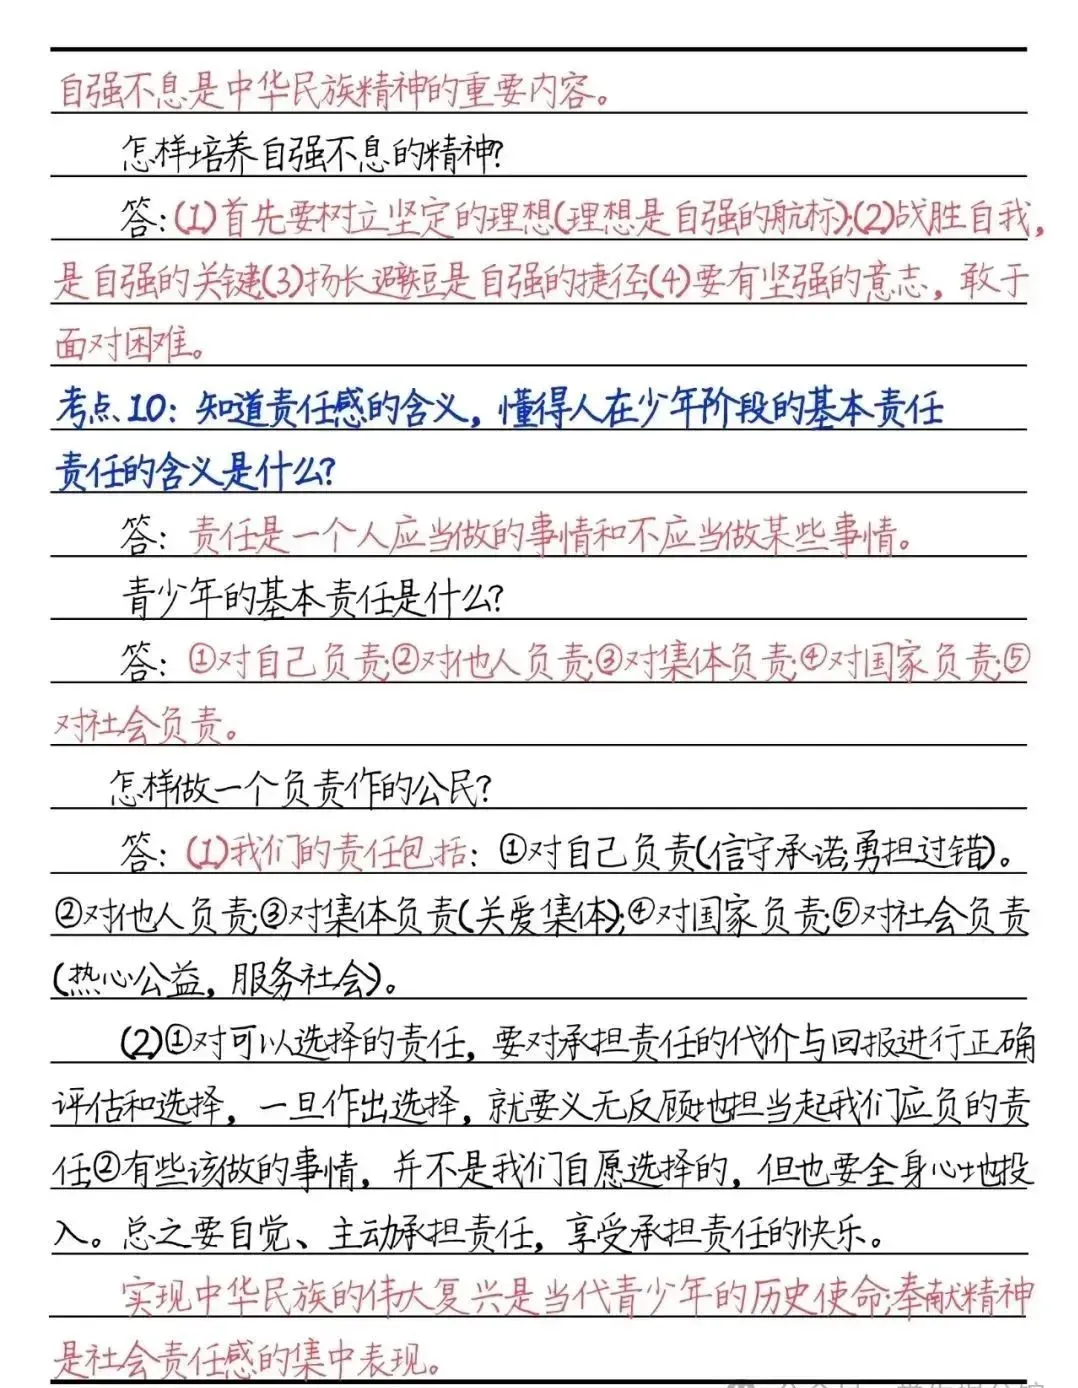 自强不息是中华民族精神的重要内容。
怎样培养自强不息的精神?
答:(1)首先要树立坚定的理想(理想是自强的航标);(2)战胜自我,
是自强的关键;(3)扬长避短是自强的捷径;(4)要有坚强的意志，敢于
面对困难。
考点10：知道责任感的含义，懂得人在少年阶段的基本责任
责任的含义是什么?
答：责任是一个人应当做的事情和不应当做某些事情。
青少年的基本责任是什么?
答：①对自己负责;②对他人负责;③对集体负责;④对国家负责;⑤
对社会负责。
怎样做一个负责作的公民?
答：(1)我们的责任包括：①对自己负责(信守承诺;勇担过错)。
②对他人负责;③对集体负责(关爱集体);④对国家负责;⑤对社会负责
(热心公益，服务社会)。
(2)①对可以选择的责任，要对承担责任的代价与回报进行正确
评估和选择，一旦作出选择，就要义无反顾地担当起我们应负的责
任;②有些该做的事情，并不是我们自愿选择的，但也要全身心地投
入。总之要自觉、主动承担责任，享受承担责任的快乐。
实现中华民族的伟大复兴是当代青少年的历史使命;奉献精神
是社会责任感的集中表现。